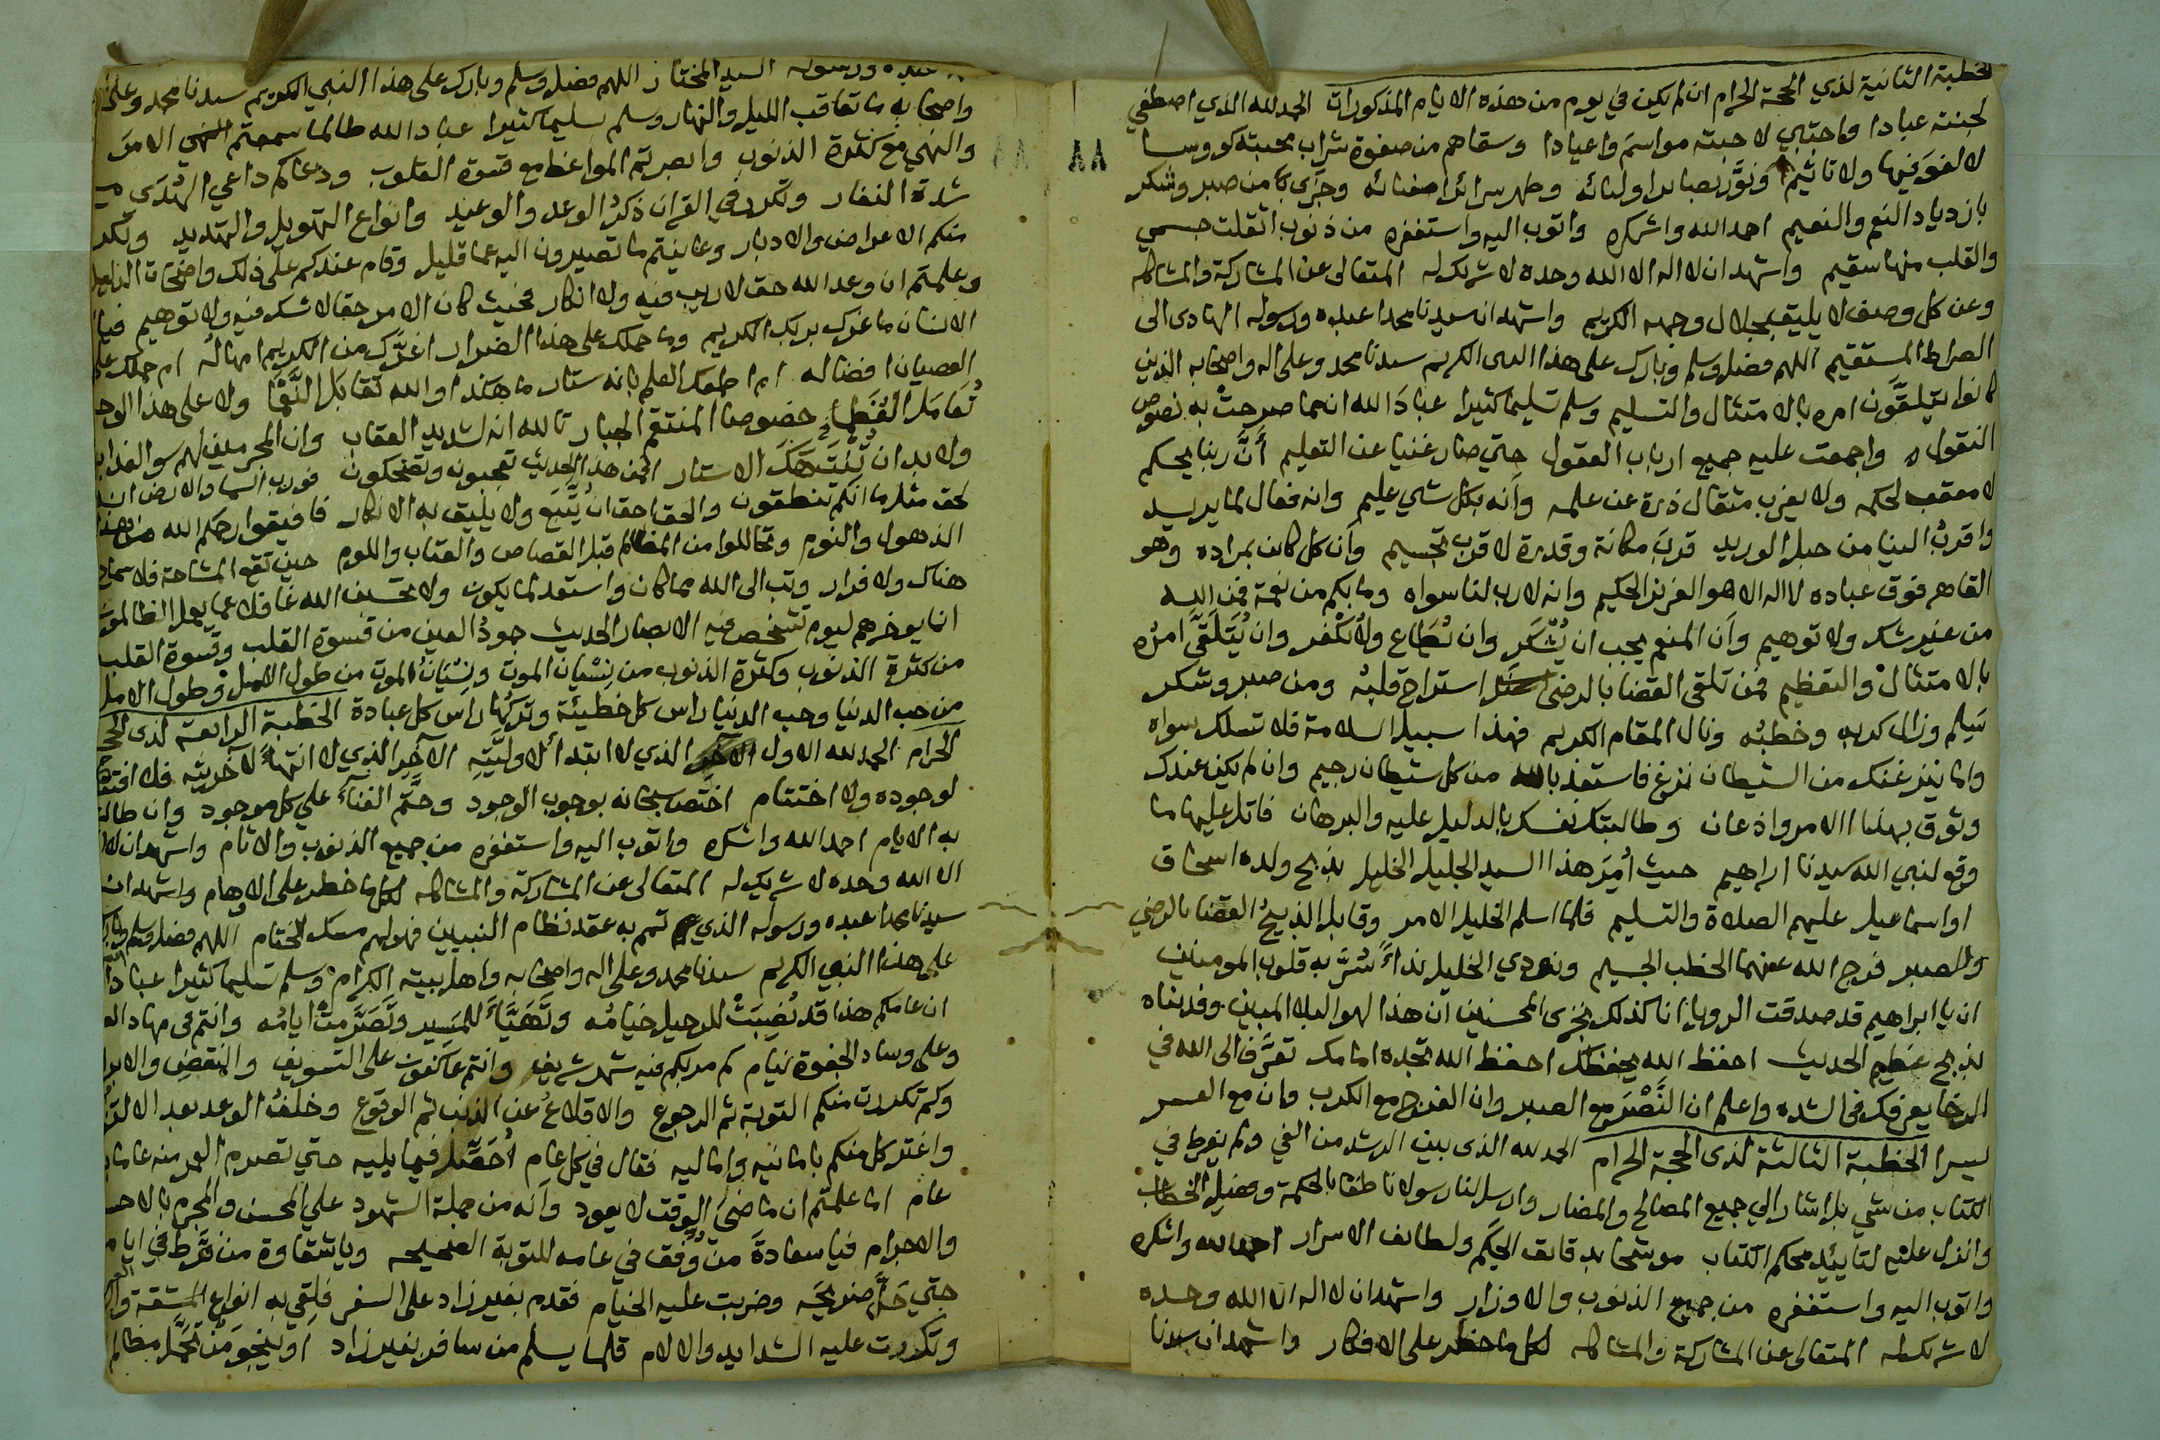 الخطبة الثانية لذي الحجة الحرام ان لم يكن في يوم من هذه الايام المذكورات الحمد لله الذي اصطفي
لجنته عبادا واجتبي لاحبته مواسمَ واعيادا وسقاهم من صفوة شراب محبته كووسا
لا لغو فيها ولا تاثيم ونوَّر بصاير اوليائه وطهر سرائر اصفيائه وجزى كل من صبر وشكر
بازدياد النعم والنعيم احمد الله واشكره واتوب اليه واستغفره من ذنوب اثقلت جسمي
والقلب منها سقيم واشهد ان لا اله الا الله وحده لا شريك له المتعالى عن المشاركة والمشاكله
وعن كل وصف لا يليق بجلال وجهه الكريم واشهد ان سيدنا محمدا عبده ورسوله الهادى الى
الصراط المستقيم اللهم فصل وسلم وبارك على هذا النبى الكريم سيدنا محمد وعلى اله واصحابه الذين
كانوا يتلقَّون امره بالامتثال والتسليم وسلم تسليما كثيرا عبادَ الله ان مما صرحتْ به نصوص
النقول واجمعت عليه جميع ارباب العقول حتي صار غنيا عن التعليم أنَّ ربنا يحكم
لا معقب لحكمه ولا يعزب مثقال ذرة عن علمه وأنه بكل شي عليم وانه فعال لما يريد
واقربُ الينا من حبل الوريد قربَ مكانة وقدرة لا قرب تجسيم وأن كل كاين بمراده وهو
القاهر فوق عباده لا اله الا هو العزيز الحكيم وانه لا رب لنا سواه وما بكم من نعمة فمن الله
من غير شك ولا توهيم وأن المنعم يجب ان يُشْكَر وان يُطَاع ولا يُكْفَر وان يُتَلَقَّى امرُه
بالامتثالْ والتعظيم فمن تلقى القضا بالرضى استراح قلبُه ومن صبر وشكر
سَلِم وزال كربه وخطبُه ونال المقام الكريم فهذا سبيل السلامة فلا تسلك سواه
واما ينزغنك من الشيطان نزغ فاستعذ بالله من كل شيطان رجيم وان لم يكن عندك
وثوق بهذا الامر واذعان وطالبتك نفسك بالدليل عليه والبرهان فاتل عليها ما
وقع لنبي الله سيدنا ابراهيم حيث أُمِرَ هذا السيد الجليل الخليل بذبح ولده اسحاق
او اسماعيل عليهم الصلاة والتسليم فلما اسلم الخليل الامر وقابل الذبيحُ القضا بالرضي
والصبر فرج الله عنهما الخطب الجسيم ونودي الخليل نداءً سُرَّ به قلوب المومنين
ان يا ابراهيم قد صدقت الرويا انا كذلك نجزى المحسنين ان هذا لهو البلا المبين وفديناه
بذبح عظيم الحديث احفظ الله يحفظك احفظ الله تجده امامك تعرَّف الى الله في
الرخا يعرفك فى الشده واعلم ان النَّصْرَ مع الصبر وان الفرج مع الكرب وان مع العسر
يسرا الخطبة الثالثة لذى الحجة الحرام الحمد لله الذى بين الرشد من الغي ولم يفرط في
الكتاب من شي بل اشار الي جميع المصالح والمضار وارسل لنا رسولا ناطقا بالحكمة وفصل الخطاب
وانزل عليه لتاييد محكم الكتاب موشحا بدقايق الحِكَم ولطايف الاسرار احمد الله واشكره
واتوب اليه واستغفره من جميع الذنوب والاوزار واشهد ان لا اله الا الله وحده
لا شريك له المتعالى عن المشاركة والمشاكله لكل ما خطر على الافكار واشهد ان سيدنا
٨٨
عبده ورسوله السيد المختار اللهم فصل وسلم وبارك على هذا النبي الكريم سيدنا محمد وعلى
واصحابه ما تعاقب الليل والنهار وسلم تسليما كثيرا عباد الله طالما سمعتم الامرَ
والنهي مع كثرة الذنوب وابصرتم المواعظ مع قسوة القلوب ودعاكم داعي الهُدَى
شدة النفار وتكرر في القران ذكرُ الوعد والوعيد وانواع التهويل والتهديد وتكرر
منكم الاعراض والادبار وعاينتم ما تصيرون اليه عما قليل وقام عندكم على ذلك واضحات الدليل
وعلمتم ان وعد الله حق لا ريب فيه ولا انكار فحيث كان الامر حقا لا شك فيه ولا توهيم فيا
الانسان ما غرك بربك الكريم وما حملك على هذا الضرار اغرَّك من الكريم امهاله ام حملك على
العصيان افضاله ام اطمعك العلم بانه ستار ما هكذا والله تقابل النَّعْمَا ولا على هذا الوجه
تُعَامَل العُظَمَا خصوصا المنتقم الجبار تالله انه لشديد العقاب وان المجرمين لهم سو العذاب
ولا بد ان تُنْتَهَكَ الاستار افمن هذا الحديث تعجبون وتضحكون فورب السما والارض انه
لحق مثل ما انكم تنطقون والحق احق ان يُتَّبَع ولا يليق به الانكار فافيقوا رحمكم الله من هذا
الذهول والنوم وتحاللوا من المظالم قبل القصاص والعتاب واللوم حين تقع المشاحة فلا سماح
هناك ولا فرار وتب الى الله مما كان واستعد لما يكون ولا تحسبن الله غافلا عما يعمل الظالمون
انما يوخرهم ليوم تشخص فيه الابصار الحديث جمودُ العين من قسوة القلب وقسوة القلب
من كثرة الذنوب وكثرة الذنوب من نِسْيان الموت ونِسْيَانُ الموت من طول الامل وطول الامل
من حب الدنيا وحب الدنيا راس كل خطيئة وتركُها راس كل عبادة الخطبة الرابعة لذى الحجة
الحرام الحمد لله الاول الذي لا ابتداءَ لاوليَّتِهِ الآخِر الذي لا انتهاءَ لآخريته فلا افتتاح
لوجوده ولا اختتام اختص سبحانه بوجوب الوجود وحتَّم الفناءَ علي كل موجود وان طالت
به الايام احمد الله واشكره واتوب اليه واستغفره من جميع الذنوب والاثام واشهد ان لا اله
الا الله وحده لا شريك له المتعالى عن المشاركة والمشاكله لكل ما خطر على الاوهام واشهد ان
سيدنا محمدا عبده ورسوله الذي تم به عقد نظام النبيين فهو لهم مسك الختام اللهم فصل وسلم وبارك
على هذا النبي الكريم سيدنا محمد وعلى اله واصحابه واهل بيته الكرام وسلم تسليما كثيرا عباد الله
ان عامكم هذا قد نُصِبَتْ للرحيل خيامُه وتَهَيَّأَ للمَسِير وتَصَرَّمتْ ايامُه وانتم فى مهاد
وعلى وساد الجفوة نيام كم مر بكم فيه شهر شريف وانتم عاكفون على التسويف والنقضِ والابرام
وكم تكررت منكم التوبة ثم الرجوع والاقلاعُ عن الذنب ثم الوقوع وخلفُ الوعد بعد
واغتر كل منكم بامانيه واماليه فقال في كل عام أُحَصِّل فيما يليه حتي تصرم العمر منه عاما بعد
عام اما علمتم ان ماضىَ الوقت لا يعود وأنه من جملة الشهود علي المحسن والمجرم بالاحسان
والاجرام فيا سعادةَ من وُفّق في عامه للتوبة الصحيحه ويا شقاوة من فَرَّط في ايامه
حتي حَلَّ ضريحَه وضربت عليه الخيام فقدم بغير زاد على السفر فلقي به انواع المشقة
وتكررت عليه الشدايد والالام قلما يسلم من سافر بغير زاد او ينجو من تحمَّل مظالم